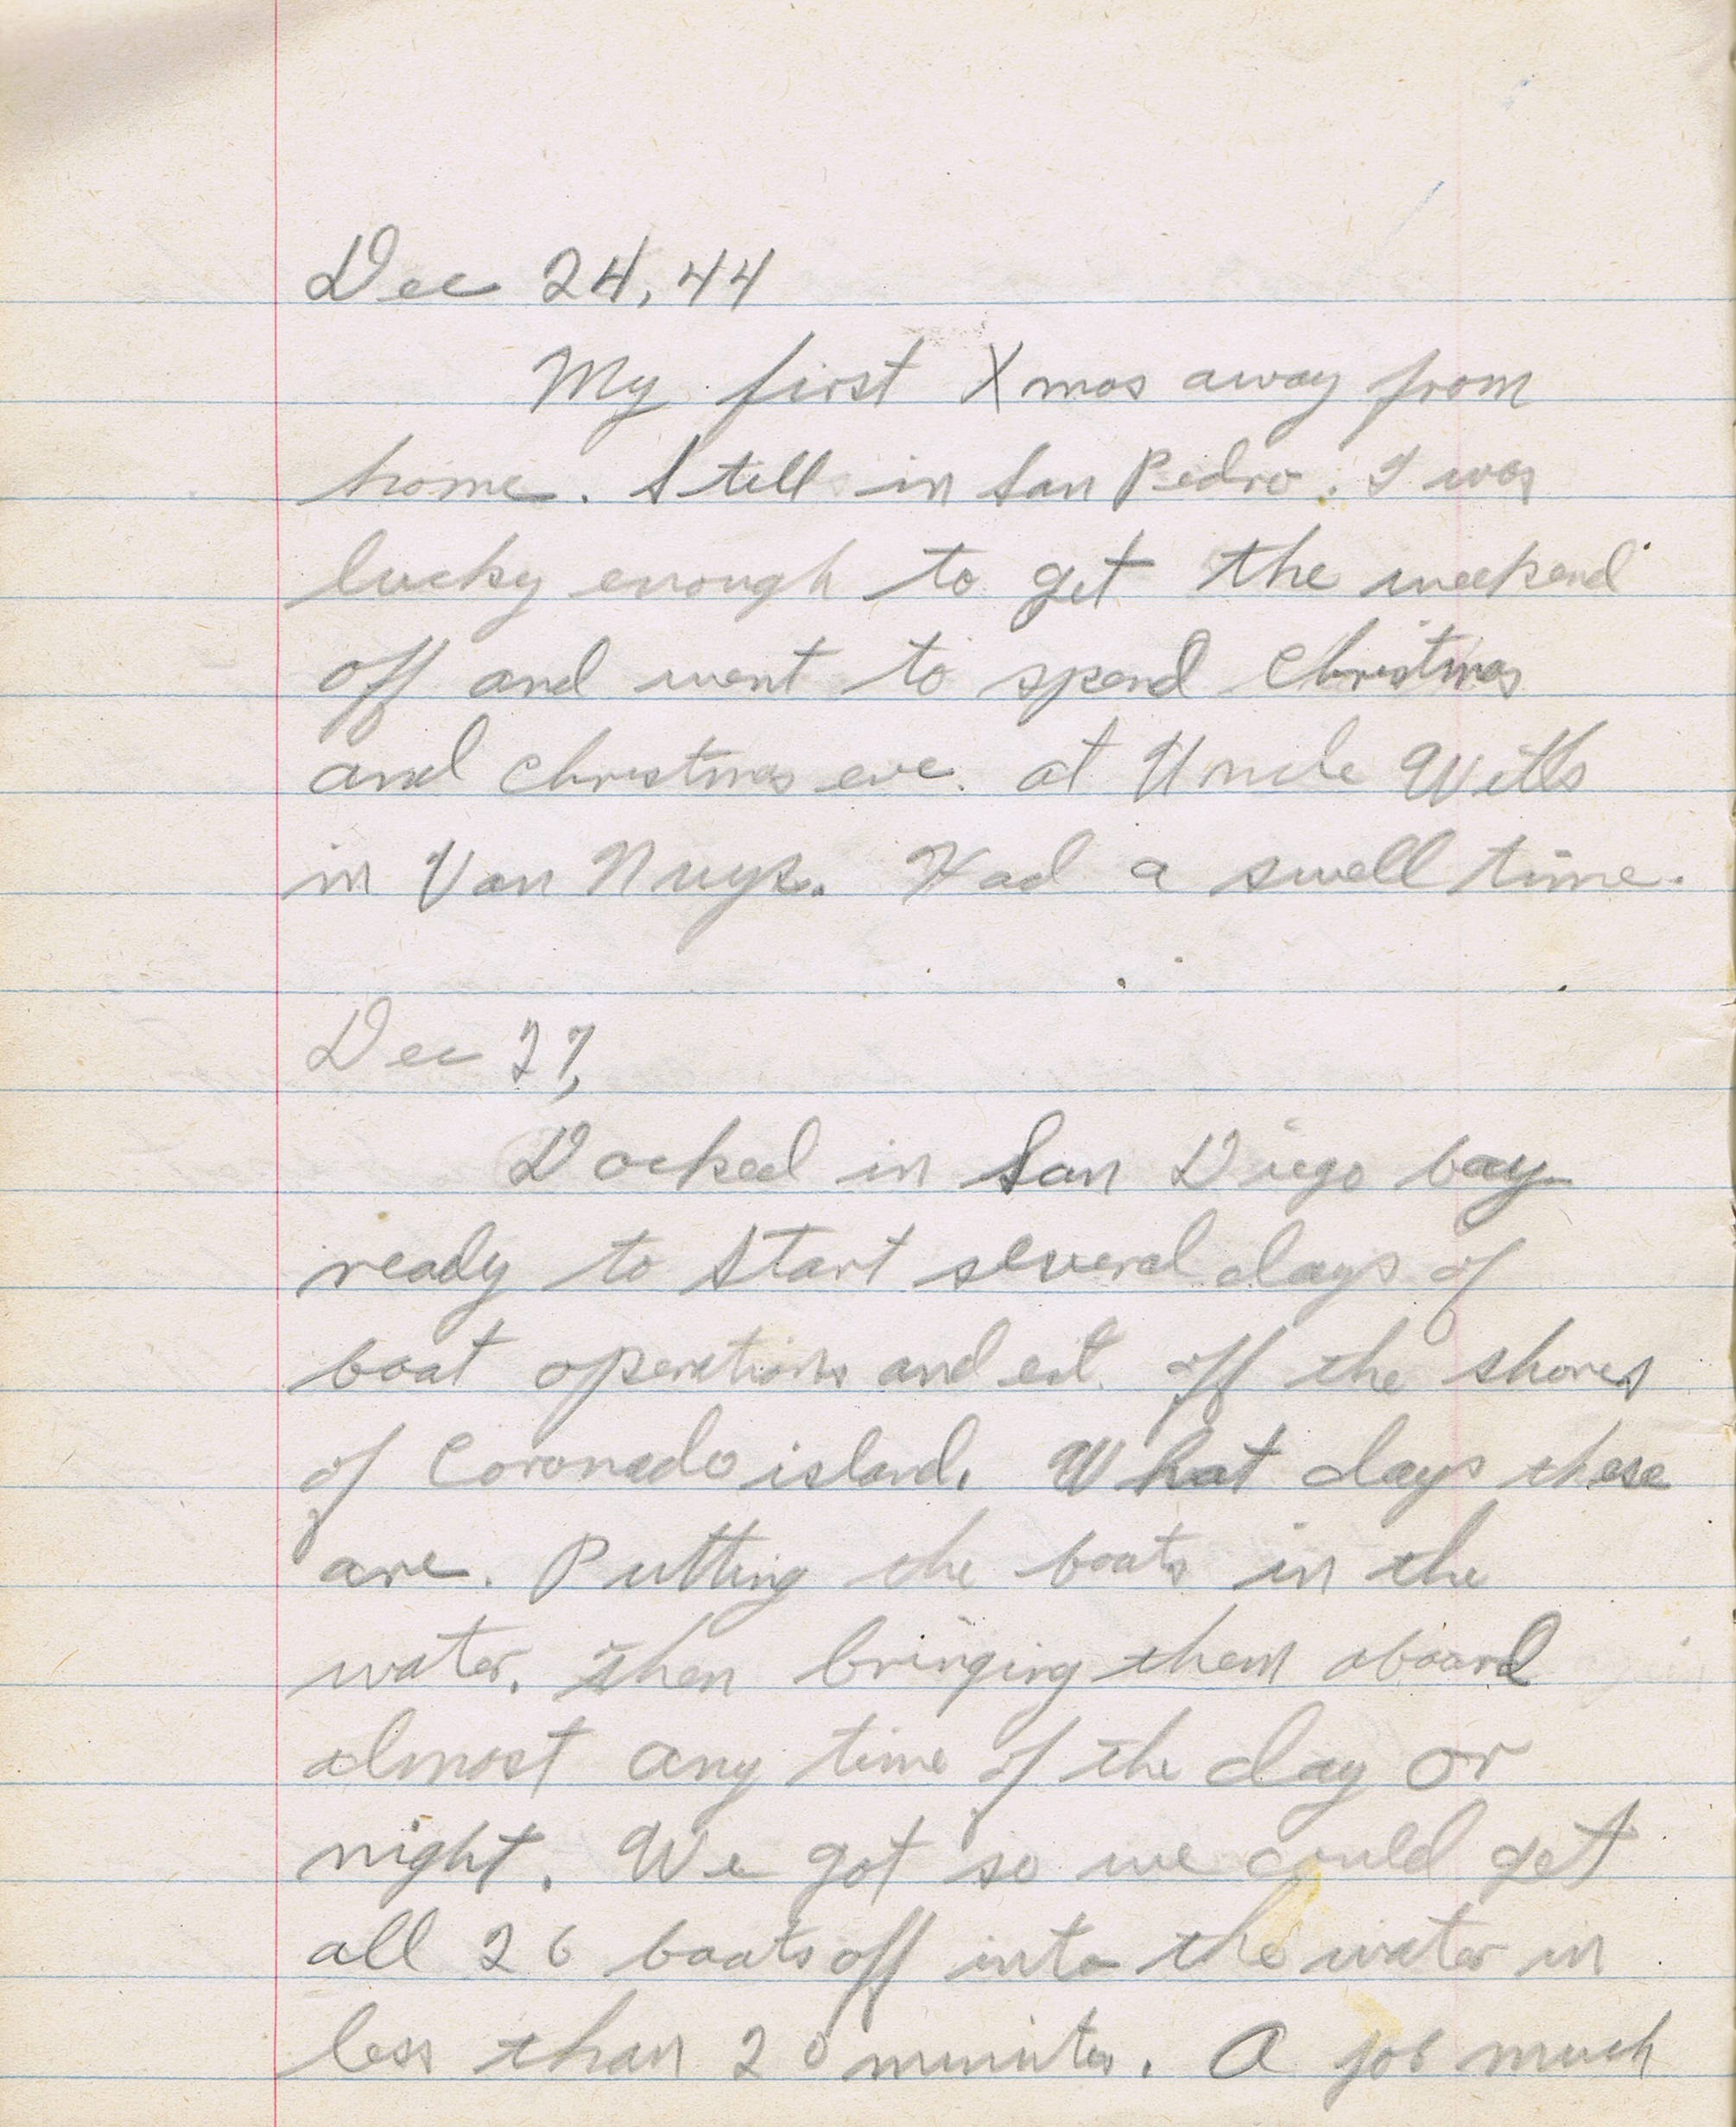 Dec 24, 44
My first Xmas away from
home. Still in San Pedro. I was
lucky enough to get the weekend
off and went to spend Christmas
and Christmas eve. at Uncle Wills
in Van Nuys. Had a swell time.
Dec 27,
Docked in San Diego bay
ready to start several days of
boat operations and ect. off the shores
of Coronado island. What days these
are. Putting the boats in the
water, then bringing them aboard
almost any time of the day or
night. We got so we could get
all 26 boats off into the water in
less than 20 minutes. A job much